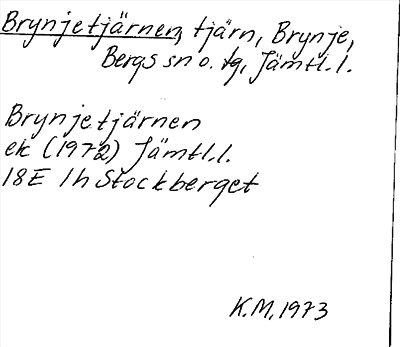 Brynjetjärnen, tjärn, Brynje,
Bergs sn o. tg, Jämtl.l.
Brynjetjärnen
ek (1972) Jämtl.l.
18E 1h Stockberget
K.M, 1973